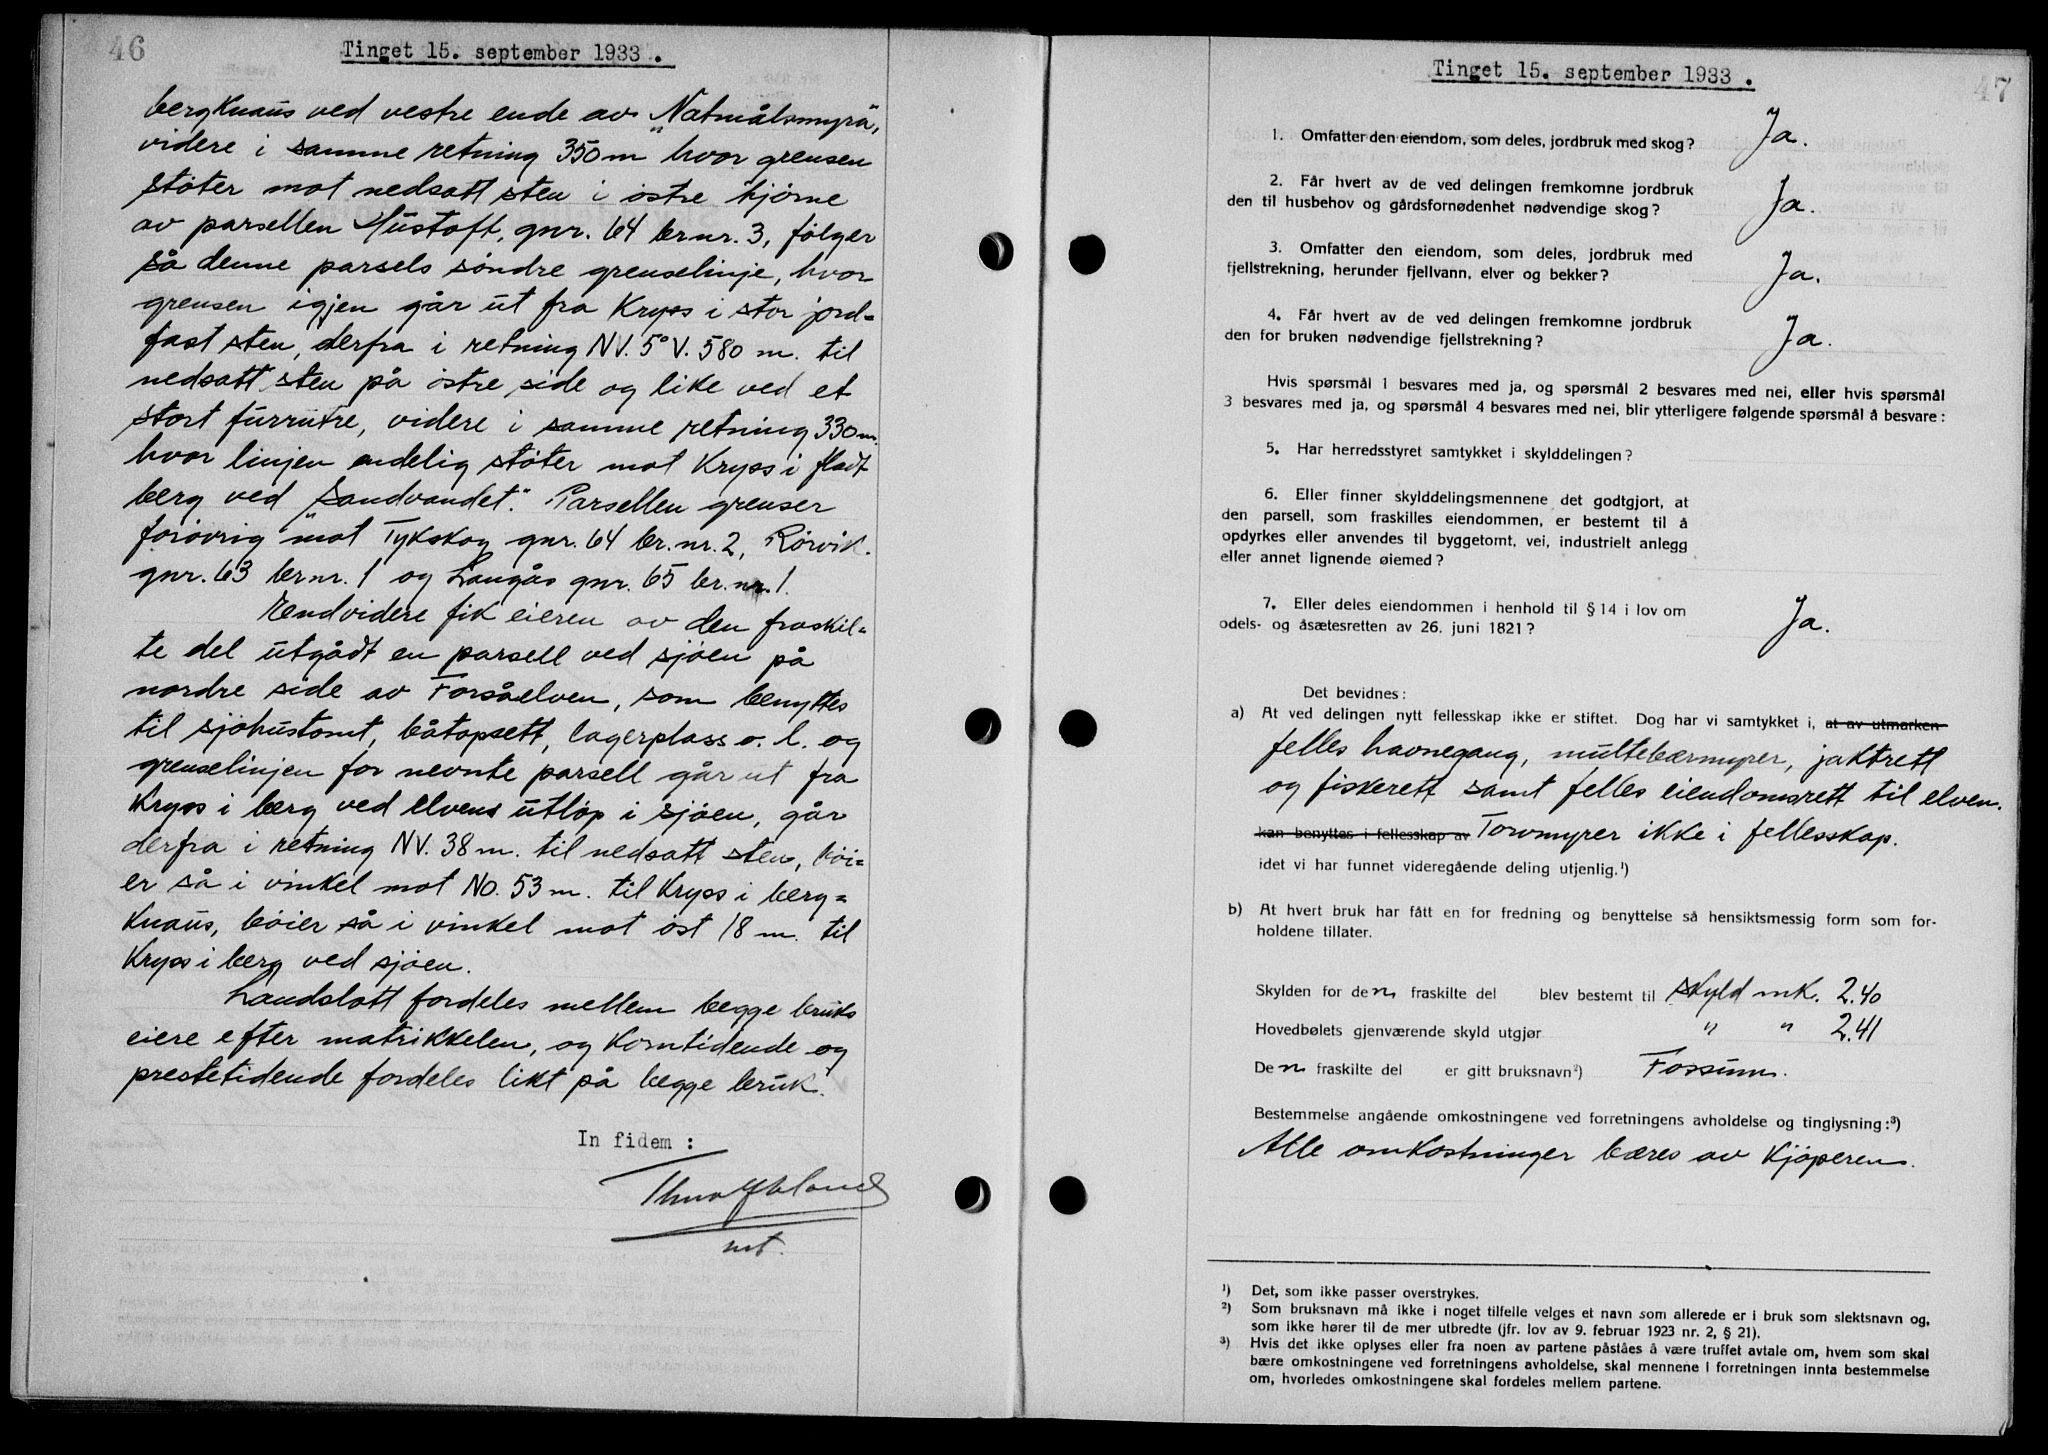 46
Tinget 15. september 1933.
bergknaus ved vestre ende av „Natmålsmyra",
videre i samme retning 350 m hvor grensen
støter mot nedsatt sten i østre hjørne
av parsellen Nustoft, gnr. 64 brnr. 3, følger
så denne parsels søndre grenselinje, hvor
grensen igjen går ut fra kryss i stor jord=
fast sten, derfra i retning NV. 5° V. 580 m. til
nedsatt sten på østre side og like ved et
stort furrutre, videre i samme retning 330 m.
hvor linjen endelig støter mot kryss i fladt
berg ved „Sandvandet". Parsellen grenser
forøvrig mot Tykskog gnr. 64 br. nr. 2, Rørvik.
gnr. 63 brnr. 1 og Langås gnr. 65 br. nr. 1.
Endvidere fik eieren av den fraskil=
te del utgådt en parsell ved sjøen på
nordre side av Forsåelven, som benyttes
til sjøhustomt, båtopsett, lagerplass o. l. og
grenselinjen for nevnte parsell går ut fra
kryss i berg ved elvens utløp i sjøen, går
derfra i retning NV. 38 m. til nedsatt sten, bøi=
er så i vinkel mot NO. 53 m. til kryss i berg=
knaus, bøier så i vinkel mot øst 18 m. til
kryss i berg ved sjøen.
Landslott fordeles mellem begge bruks
eiere efter matrikkelen, og korntidende og
prestetidende fordeles likt på begge bruk.
In fidem :
mt.
Tinget 15. september 1933.
47
1. Omfatter den eiendom, som deles, jordbruk med skog? Ja.
2. Får hvert av de ved delingen fremkomne jordbruk
den til husbehov og gårdsfornødenhet nødvendige skog? Ja.
3. Omfatter den eiendom, som deles, jordbruk med
fjellstrekning, herunder fjellvann, elver og bekker? Ja.
4. Får hvert av de ved delingen fremkomne jordbruk
den for bruken nødvendige fjellstrekning? Ja.
Hvis spørsmål 1 besvares med ja, og spørsmål 2 besvares med nei, eller hvis spørsmål
3 besvares med ja, og spørsmål 4 besvares med nei, blir ytterligere følgende spørsmål å besvare :
5. Har herredsstyret samtykket i skylddelingen?
6. Eller finner skylddelingsmennene det godtgjort, at
den parsell, som fraskilles eiendommen, er bestemt til å
opdyrkes eller anvendes til byggetomt, vei, industrielt anlegg
eller annet lignende øiemed?
7. Eller deles eiendommen i henhold til § 14 i lov om
odels- og åsætesretten av 26. juni 1821? Ja.
Det bevidnes :
a) At ved delingen nytt fellesskap ikke er stiftet. Dog har vi samtykket i, at av utmarken
felles havnegang, multebærmyrer, jaktrett
og fiskerett samt felles eiendomsrett til elven.
kan benyttes i fellesskap av Torvmyrer ikke i fellesskap.
idet vi har funnet videregående deling utjenlig.¹)
b) At hvert bruk har fått en for fredning og benyttelse så hensiktsmessig form som for-
holdene tillater.
Skylden for den fraskilte del blev bestemt til skyld mk. 2.40
Hovedbølets gjenværende skyld utgjør " " 2.41
Den fraskilte del er gitt bruksnavn²) Fossum.
Bestemmelse angående omkostningene ved forretningens avholdelse og tinglysning :³)
Alle omkostninger bæres av kjøperen.
¹) Det, som ikke passer overstrykes.
²) Som bruksnavn må ikke i noget tilfelle velges et navn som allerede er i bruk som slektsnavn og,
som ikke hører til de mer utbredte (jfr. lov av 9. februar 1923 nr. 2, § 21).
³) Hvis det ikke oplyses eller fra noen av partene påståes å være truffet avtale om, hvem som skal
bære omkostningene ved forretningens avholdelse, skal mennene i forretningen innta bestemmelse
om, hvorledes omkostningene skal fordeles mellem partene.